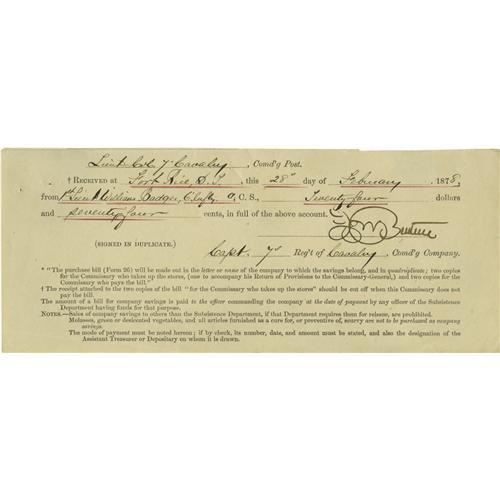 Lieut Col 7" Cavalry Comd'g Post.
† RECEIVED at Fort Rice, D.T., this 28" day of February, 1878,
from 1st Lieut William Badger, 6" Infty A. C. S., Twenty four dollars
and seventy four cents, in full of the above account.
(SIGNED IN DUPLICATE.)
Capt. 7" Reg't of Cavalry, Comd'g Company.
* "The purchase bill (Form 26) will be made out in the letter or name of the company to which the savings belong, and in quadruplicate; two copies
for the Commissary who takes up the stores, (one to accompany his Return of Provisions to the Commissary-General,) and two copies for the
Commissary who pays the bill."
† The receipt attached to the two copies of the bill "for the Commissary who takes up the stores" should be cut off when this Commissary does not
pay the bill.
The amount of a bill for company savings is paid to the officer commanding the company at the date of payment by any officer of the Subsistence
Department having funds for that purpose.
NOTES.—Sales of company savings to others than the Subsistence Department, if that Department requires them for reissue, are prohibited.
Molasses, green or desiccated vegetables, and all articles furnished as a cure for, or preventive of, scurvy are not to be purchased as company
savings.
The mode of payment must be noted hereon; if by check, its number, date, and amount must be stated, and also the designation of the
Assistant Treasurer or Depositary on whom it is drawn.